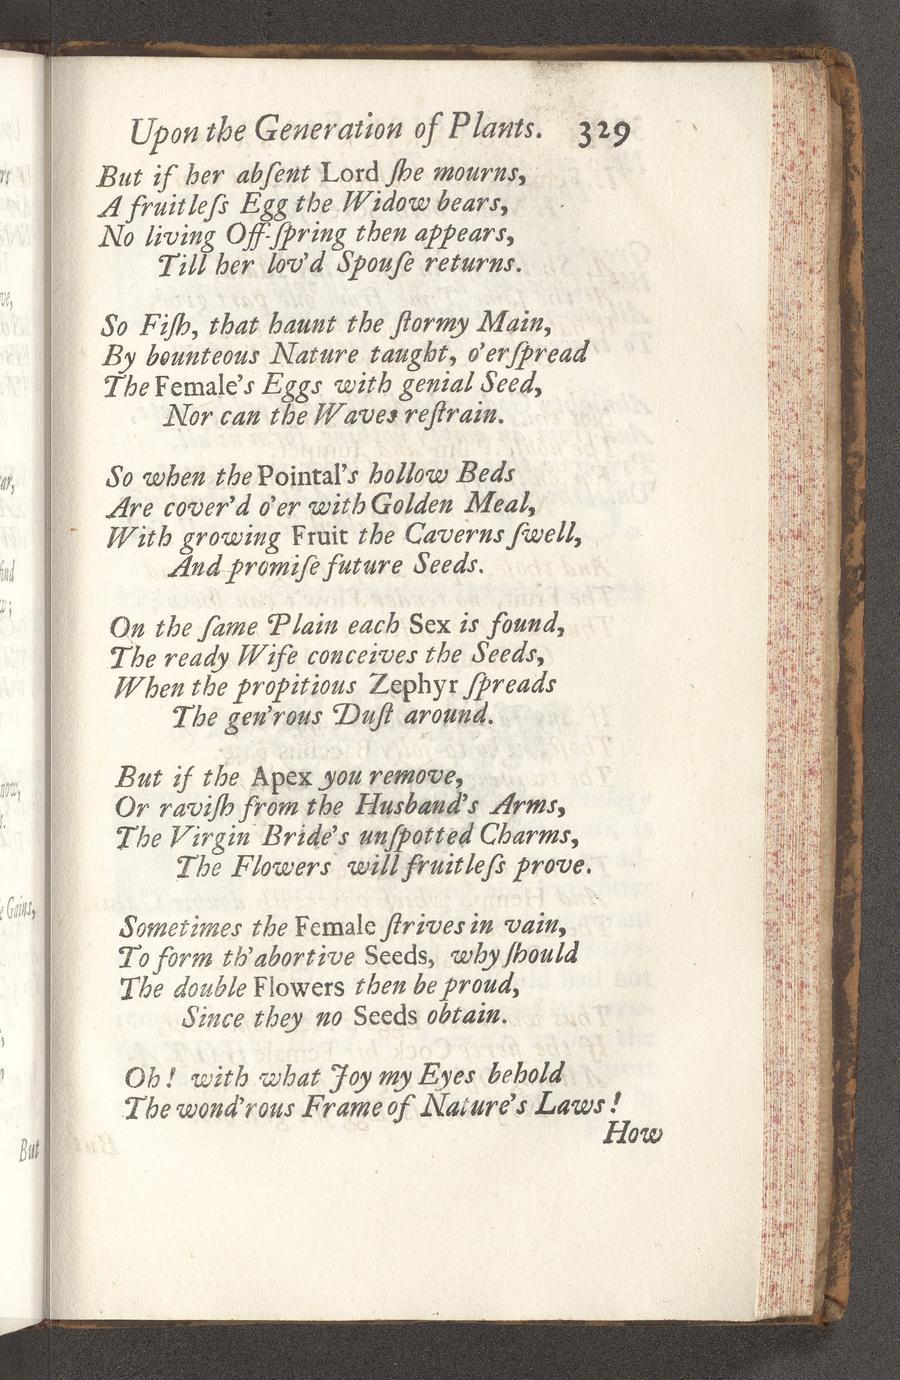 Upon the Generation of Plants. 329
But if her abſent Lord ſhe mourns,
A fruitleſs Egg the Widow bears,
No living Off-ſpring then appears,
Till her lov'd Spouſe returns.
So Fiſh, that haunt the ſtormy Main,
By bounteous Nature taught, o'erſpread
The Female's Eggs with genial Seed,
Nor can the Waves reſtrain.
So when the Pointal's hollow Beds
Are cover'd o'er with Golden Meal,
With growing Fruit the Caverns ſwell,
And promiſe future Seeds.
On the ſame Plain each Sex is found,
The ready Wife conceives the Seeds,
When the propitious Zephyr ſpreads
The gen'rous Duſt around.
But if the Apex you remove,
Or raviſh from the Husband's Arms,
The Virgin Bride's unſpotted Charms,
The Flowers will fruitleſs prove.
Sometimes the Female ſtrives in vain,
To form th'abortive Seeds, why ſhould
The double Flowers then be proud,
Since they no Seeds obtain.
Oh! with what Joy my Eyes behold
The wond'rous Frame of Nature's Laws!
How
But